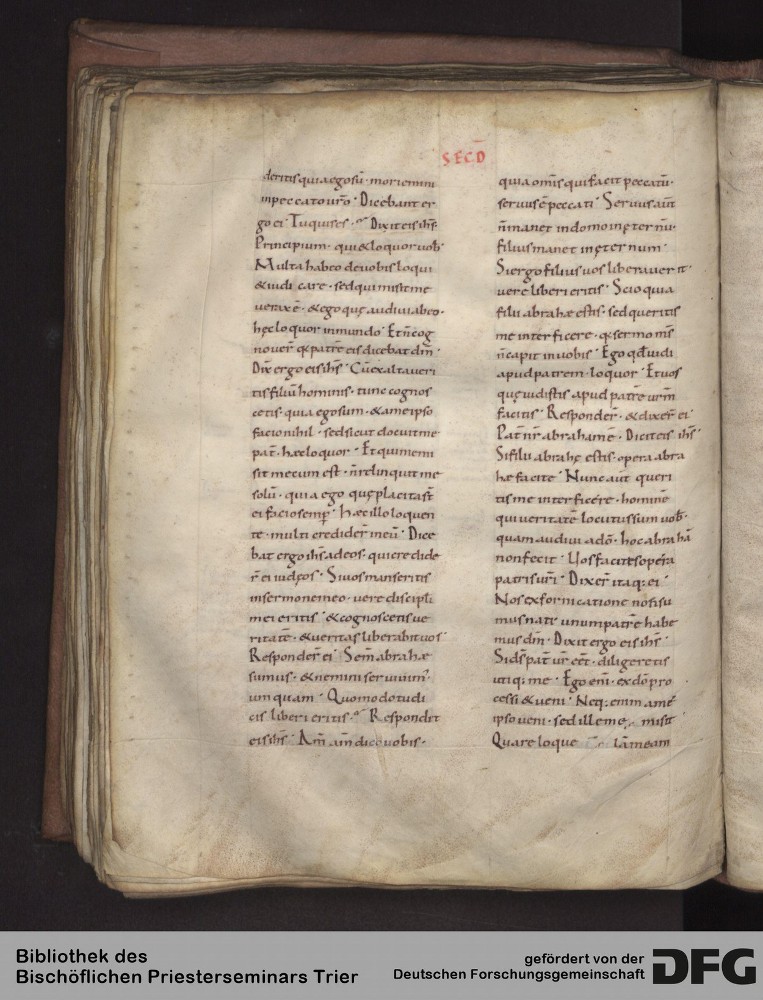 SECD̄
deritis quia ego sū· moriemini
in peccato ur̄o· Dicebant er
go ei· Tu quis es· Dixit eis ih̄s·
Principium· qui & loquor uob·
Multa habeo de uobis loqui
& iudicare· sed qui misit me
uerax ē· & ego quę audiui ab eo·
hęc loquor in mundo· Et n̄ cog
nouer̄ q̄ patrē eis dicebat dm̄·
Dix̄ ergo eis ih̄s· Cū exaltaueri
tis filiū hominis· tunc cognos
cetis· quia ego sum· & a me ipso
facio nihil· sed sicut docuit me
pat̄· hæc loquor· Et qui me mi
sit mecum est· n̄ relinquit me
solū· quia ego quę placita st̄
ei facio semp̄· hæc illo loquen
te· multi crediderr̄ in eū· Dice
bat ergo ih̄s ad eos· qui credide
r̄ ei iudęos· Si uos manseritis
in sermone meo· uere discipli
mei eritis· & cognoscetis ue
ritatē· & ueritas liberabit uos·
Responder̄ ei· Sem̄ abrahæ
sumus· & nemini seruiuim̄·
umquam· Quomodo tu di
cis liberi eritis· Respondit
eis ih̄s· Am̄ am̄ dico uobis·
quia omīs qui facit peccatū·
seruus ē peccati· Seruus aūt
n̄ manet in domo in ęternū·
filius manet in ęternum·
Si ergo filius uos liberauerit·
uere liberi eritis· Scio quia
filii abrahæ estis· sed queritis
me interficere· q̄ sermo ms̄
n̄ capit in uobis· Ego qd̄ uidi
apud patrem· loquor· Et uos
quę uidistis apud patrē urm̄
facitis· Responder̄· & dixer̄ ei·
Pat̄ nr̄ abraham ē· Dicit eis ih̄s·
Si filii abrahę estis· opera abra
hæ facite· Nunc aūt queri
tis me interficere· hominē
qui ueritatē locutus sum uob·
quam audiui a dō· hoc abrahā
non fecit· Uos facitis opera
patris uri· Dixer̄ itaq; ei·
Nos ex fornicatione nō su
mus nati· unum patrē habe
mus dm̄· Dixit ergo eis ih̄s·
Si ds̄ pat̄ ur̄ eēt· diligeretis
utiq; me· Ego enī· ex dō pro
cessi & ueni· Neq; enim a me
ipso ueni· sed ille me misit
Quare loque lā meam
Bibliothek des
Bischöflichen Priesterseminars Trier
gefördert von der
Deutschen Forschungsgemeinschaft
DFG